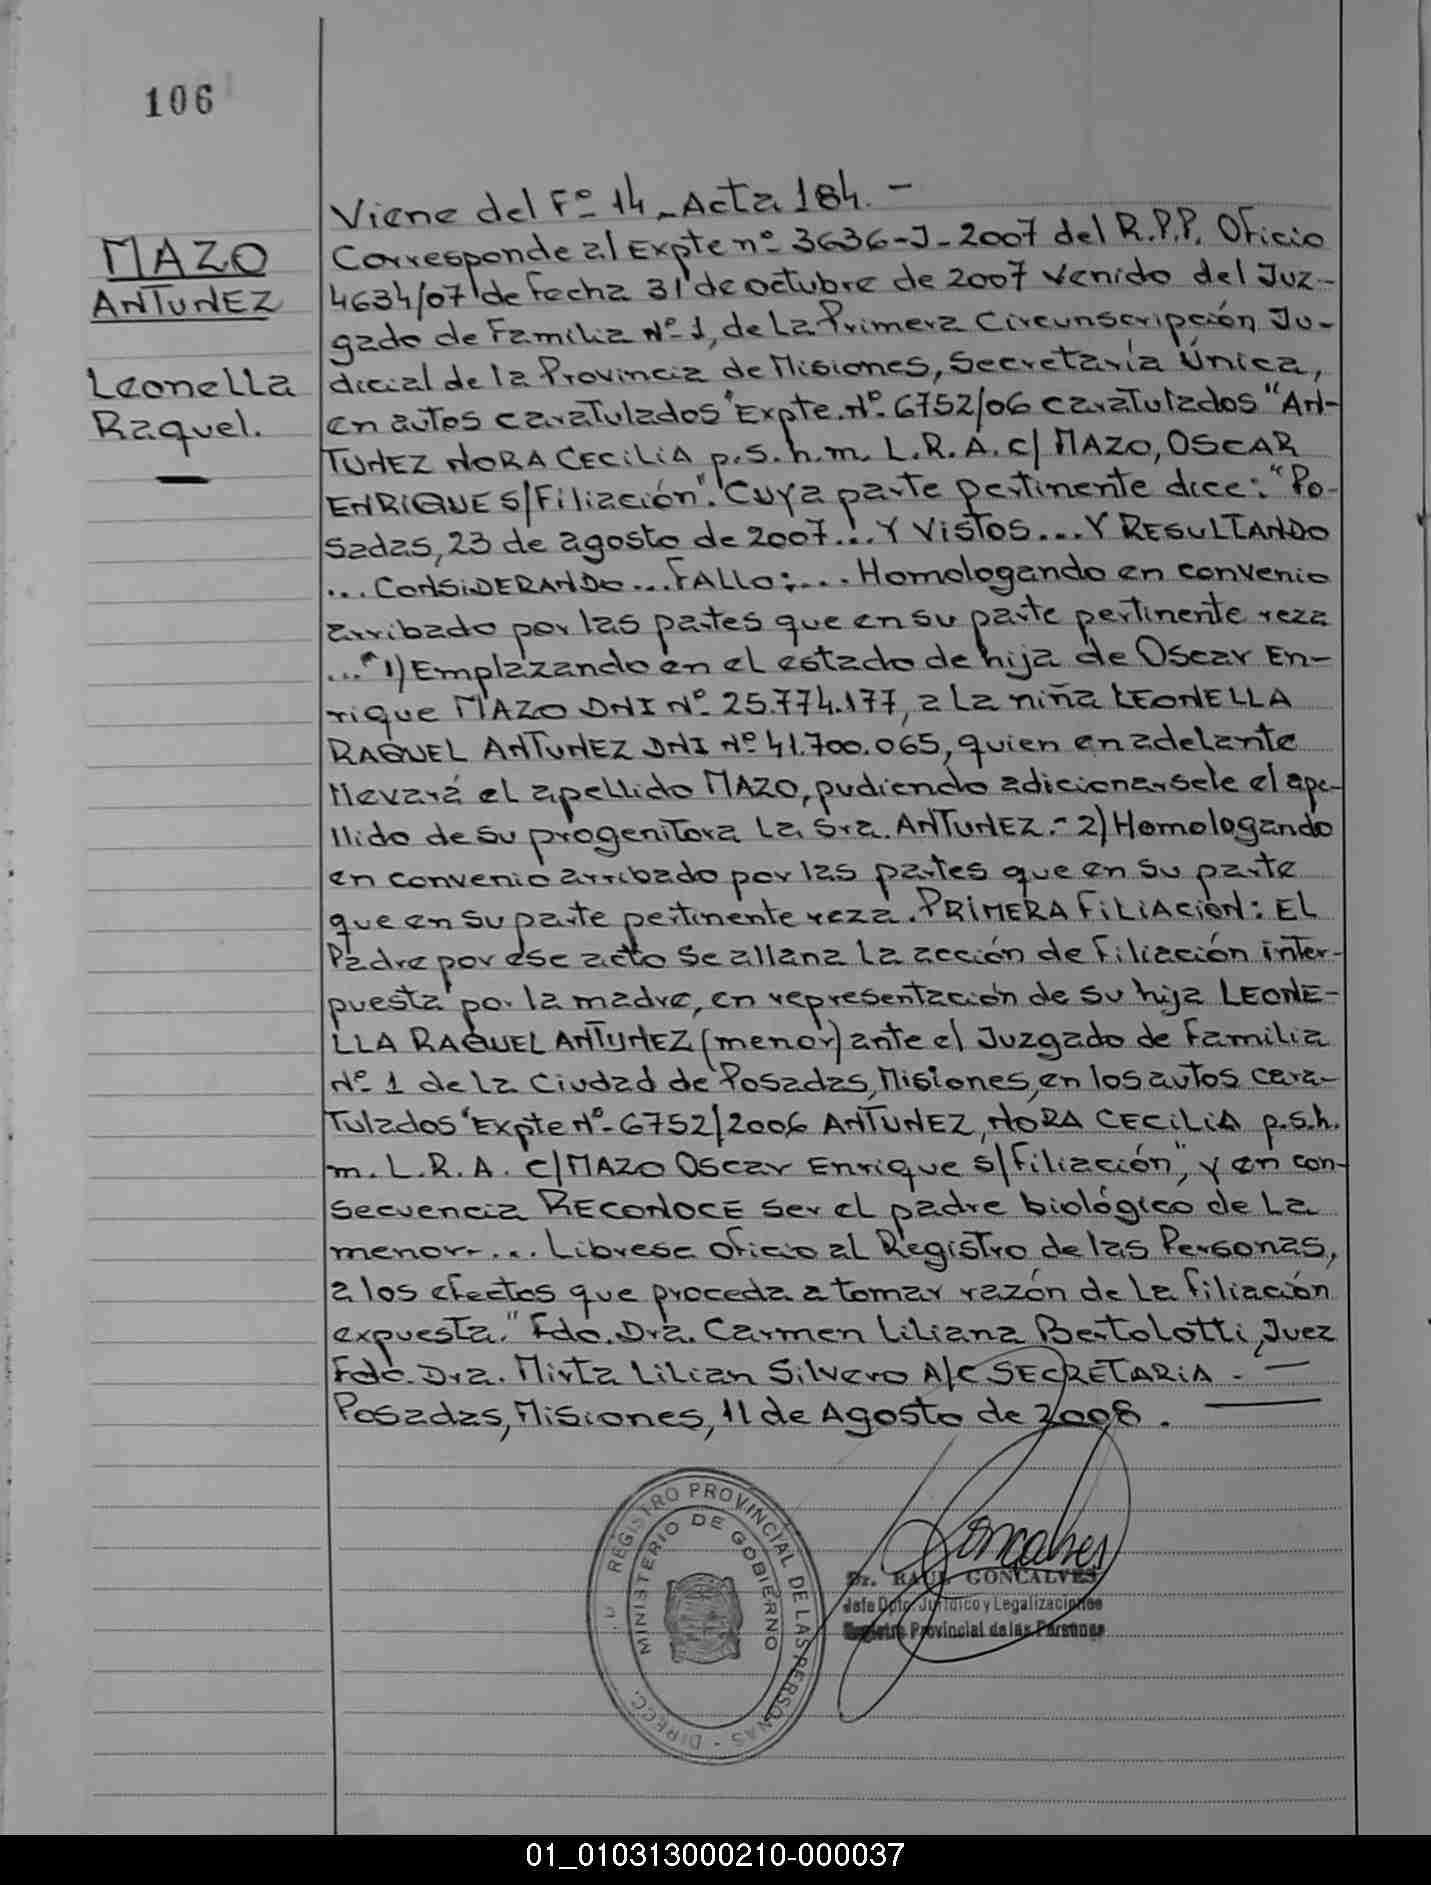 106
MAZO
ANTUNEZ
Leonella
Raquel.
Viene del Fº 14 - Acta 184. -
Corresponde al Expte nº 3636-J-2007 del R.P.P. Oficio
4634/07 de fecha 31 de octubre de 2007 venido del Juz-
gado de Familia Nº 1, de La Primera Circunscripción Ju-
dicial de la Provincia de Misiones, Secretaría Única,
en autos caratulados "Expte. Nº 6752/06 caratulados "AN-
TUNEZ NORA CECILIA p.s.h.m. L.R.A. c/ MAZO, OSCAR
ENRIQUE s/Filiación". Cuya parte pertinente dice: "Po-
sadas, 23 de agosto de 2007... Y VISTOS... Y RESULTANDO
... CONSIDERANDO... FALLO:... Homologando en convenio
arribado por las partes que en su parte pertinente reza
..."1) Emplazando en el estado de hija de Oscar En-
rique MAZO DNI Nº 25.774.177, a la niña LEONELLA
RAQUEL ANTUNEZ DNI Nº 41.700.065, quien en adelante
llevará el apellido MAZO, pudiendo adicionarsele el ape-
llido de su progenitora La Sra. ANTUNEZ.- 2) Homologando
en convenio arribado por las partes que en su parte
que en su parte pertinente reza. PRIMERA FILIACIÓN: EL
Padre por ese acto se allana la acción de filiación inter-
puesta por la madre, en representación de su hija LEONE-
LLA RAQUEL ANTUNEZ (menor) ante el Juzgado de Familia
Nº 1 de la Ciudad de Posadas, Misiones, en los autos cara-
tulados "Expte Nº 6752/2006 ANTUNEZ, NORA CECILIA p.s.h.
m. L.R.A. c/MAZO Oscar Enrique s/Filiación", y en con-
secuencia RECONOCE ser el padre biológico de La
menor-... Librese oficio al Registro de las Personas,
a los efectos que proceda a tomar razón de la filiación
expuesta." Fdo. Dra. Carmen Liliana Bertolotti, Juez
Fdo. Dra. Mirta Lilian Silvero A/C SECRETARIA. -
Posadas, Misiones, 11 de Agosto de 2008.
DIRECC. REGISTRO PROVINCIAL DE LAS PERSONAS -
MINISTERIO DE GOBIERNO
Goncalves
Dr. RAUL GONCALVES
Jefe Dpto. Jurídico y Legalizaciones
Registro Provincial de las Personas
01_010313000210-000037